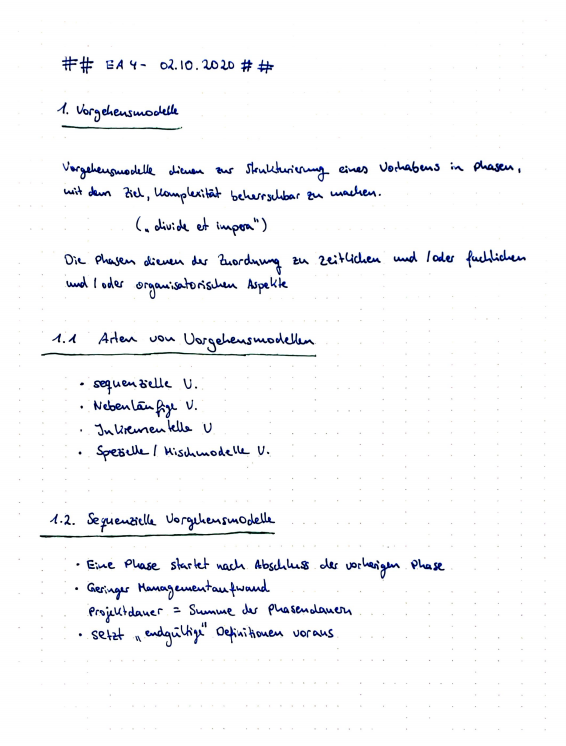 ## EA 4 - 02.10.2020 ##
1. Vorgehensmodelle
Vorgehensmodelle dienen zur Strukturierung eines Vorhabens in Phasen,
mit dem Ziel, Komplexität beherrschbar zu machen.
(„divide et impera")
Die Phasen dienen der Zuordnung zu zeitlichen und / oder fachlichen
und / oder organisatorischen Aspekte
1.1 Arten von Vorgehensmodellen
• sequenzielle V.
• Nebenläufige V.
• Inkrementelle V
• Spezielle / Mischmodelle V.
1.2. Sequenzielle Vorgehensmodelle
• Eine Phase startet nach Abschluss der vorherigen Phase
• Geringer Managementaufwand
Projektdauer = Summe der Phasendauern
• setzt „endgültige" Definitionen voraus